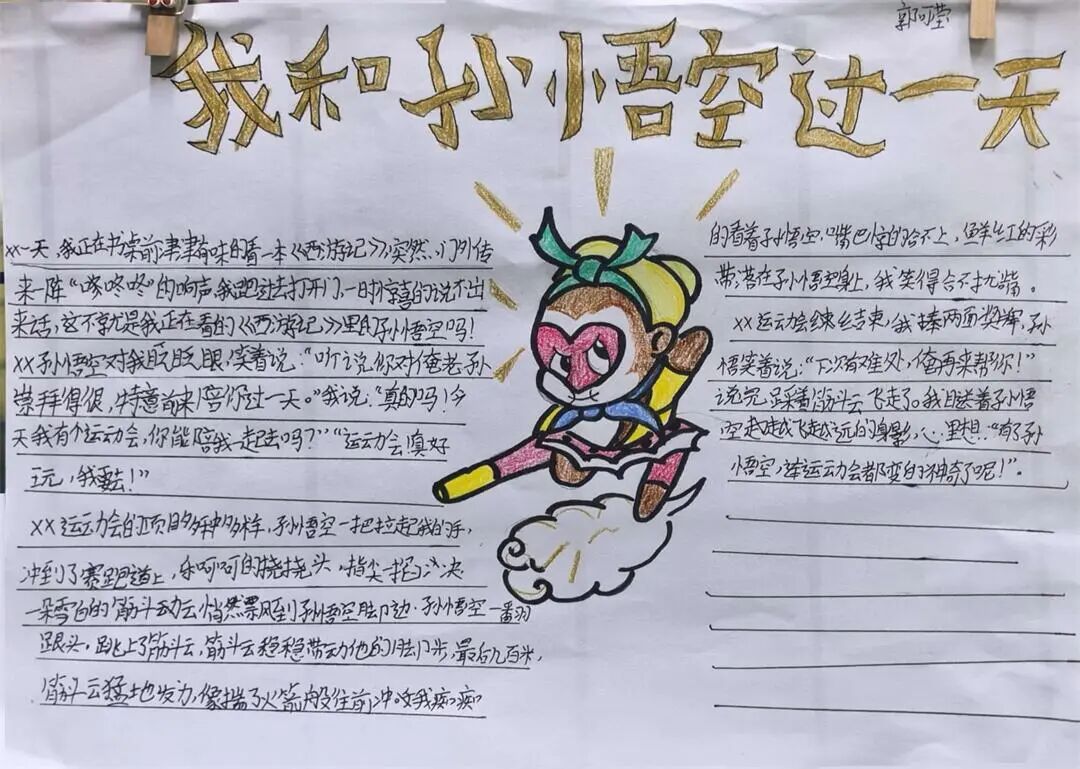 郭可莹
我和孙悟空过一天
xx一天，我正在书桌前津津有味的看一本《西游记》，突然，门外传
来一阵“咚咚咚”的响声，我跑过去打开门，一时惊喜的说不出
来话，这不就是我正在看的《西游记》里的孙悟空吗！
xx孙悟空对我眨眨眼，笑着说：“听说你对俺老孙
崇拜得很，特意前来陪你过一天。”我说：“真的吗！今
天我有个运动会，你能陪我一起去吗？”“运动会！真好
玩，我要去！”
xx运动会的项目多种多样，孙悟空一把拉起我的手，
冲到了赛跑道上，乐呵呵的挠挠头，指尖一
一朵雪白的筋斗云悄然飘到孙悟空脚边．孙悟空一番羽
跟头。跳上了筋斗云，筋斗云稳稳带动他的脚步，最后九百米，
筋斗云猛地发力，像揣了火箭般往前冲。我痴痴
的看着孙悟空，嘴巴惊的合不上，鲜红的彩
带落在孙悟空身上，我笑得合不拢嘴。
xx运动会结束，我捧两面奖牌，孙
悟笑着说：“下次有难处，俺再来帮你！”
说完踩着筋斗云飞走了。我目送着孙悟
空越飞越远的身影，心里想：“有了孙
悟空，连运动会都变的神奇了呢！”。